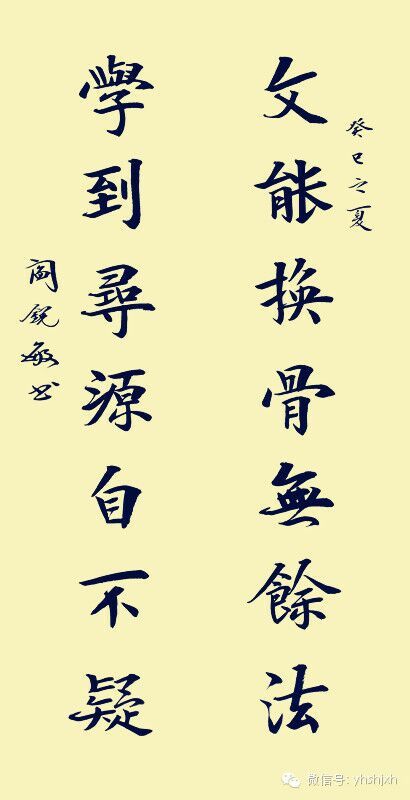 癸巳之夏
文能换骨無餘法
學到尋源自不疑
阎锐敏书
微信号: yhshjxh